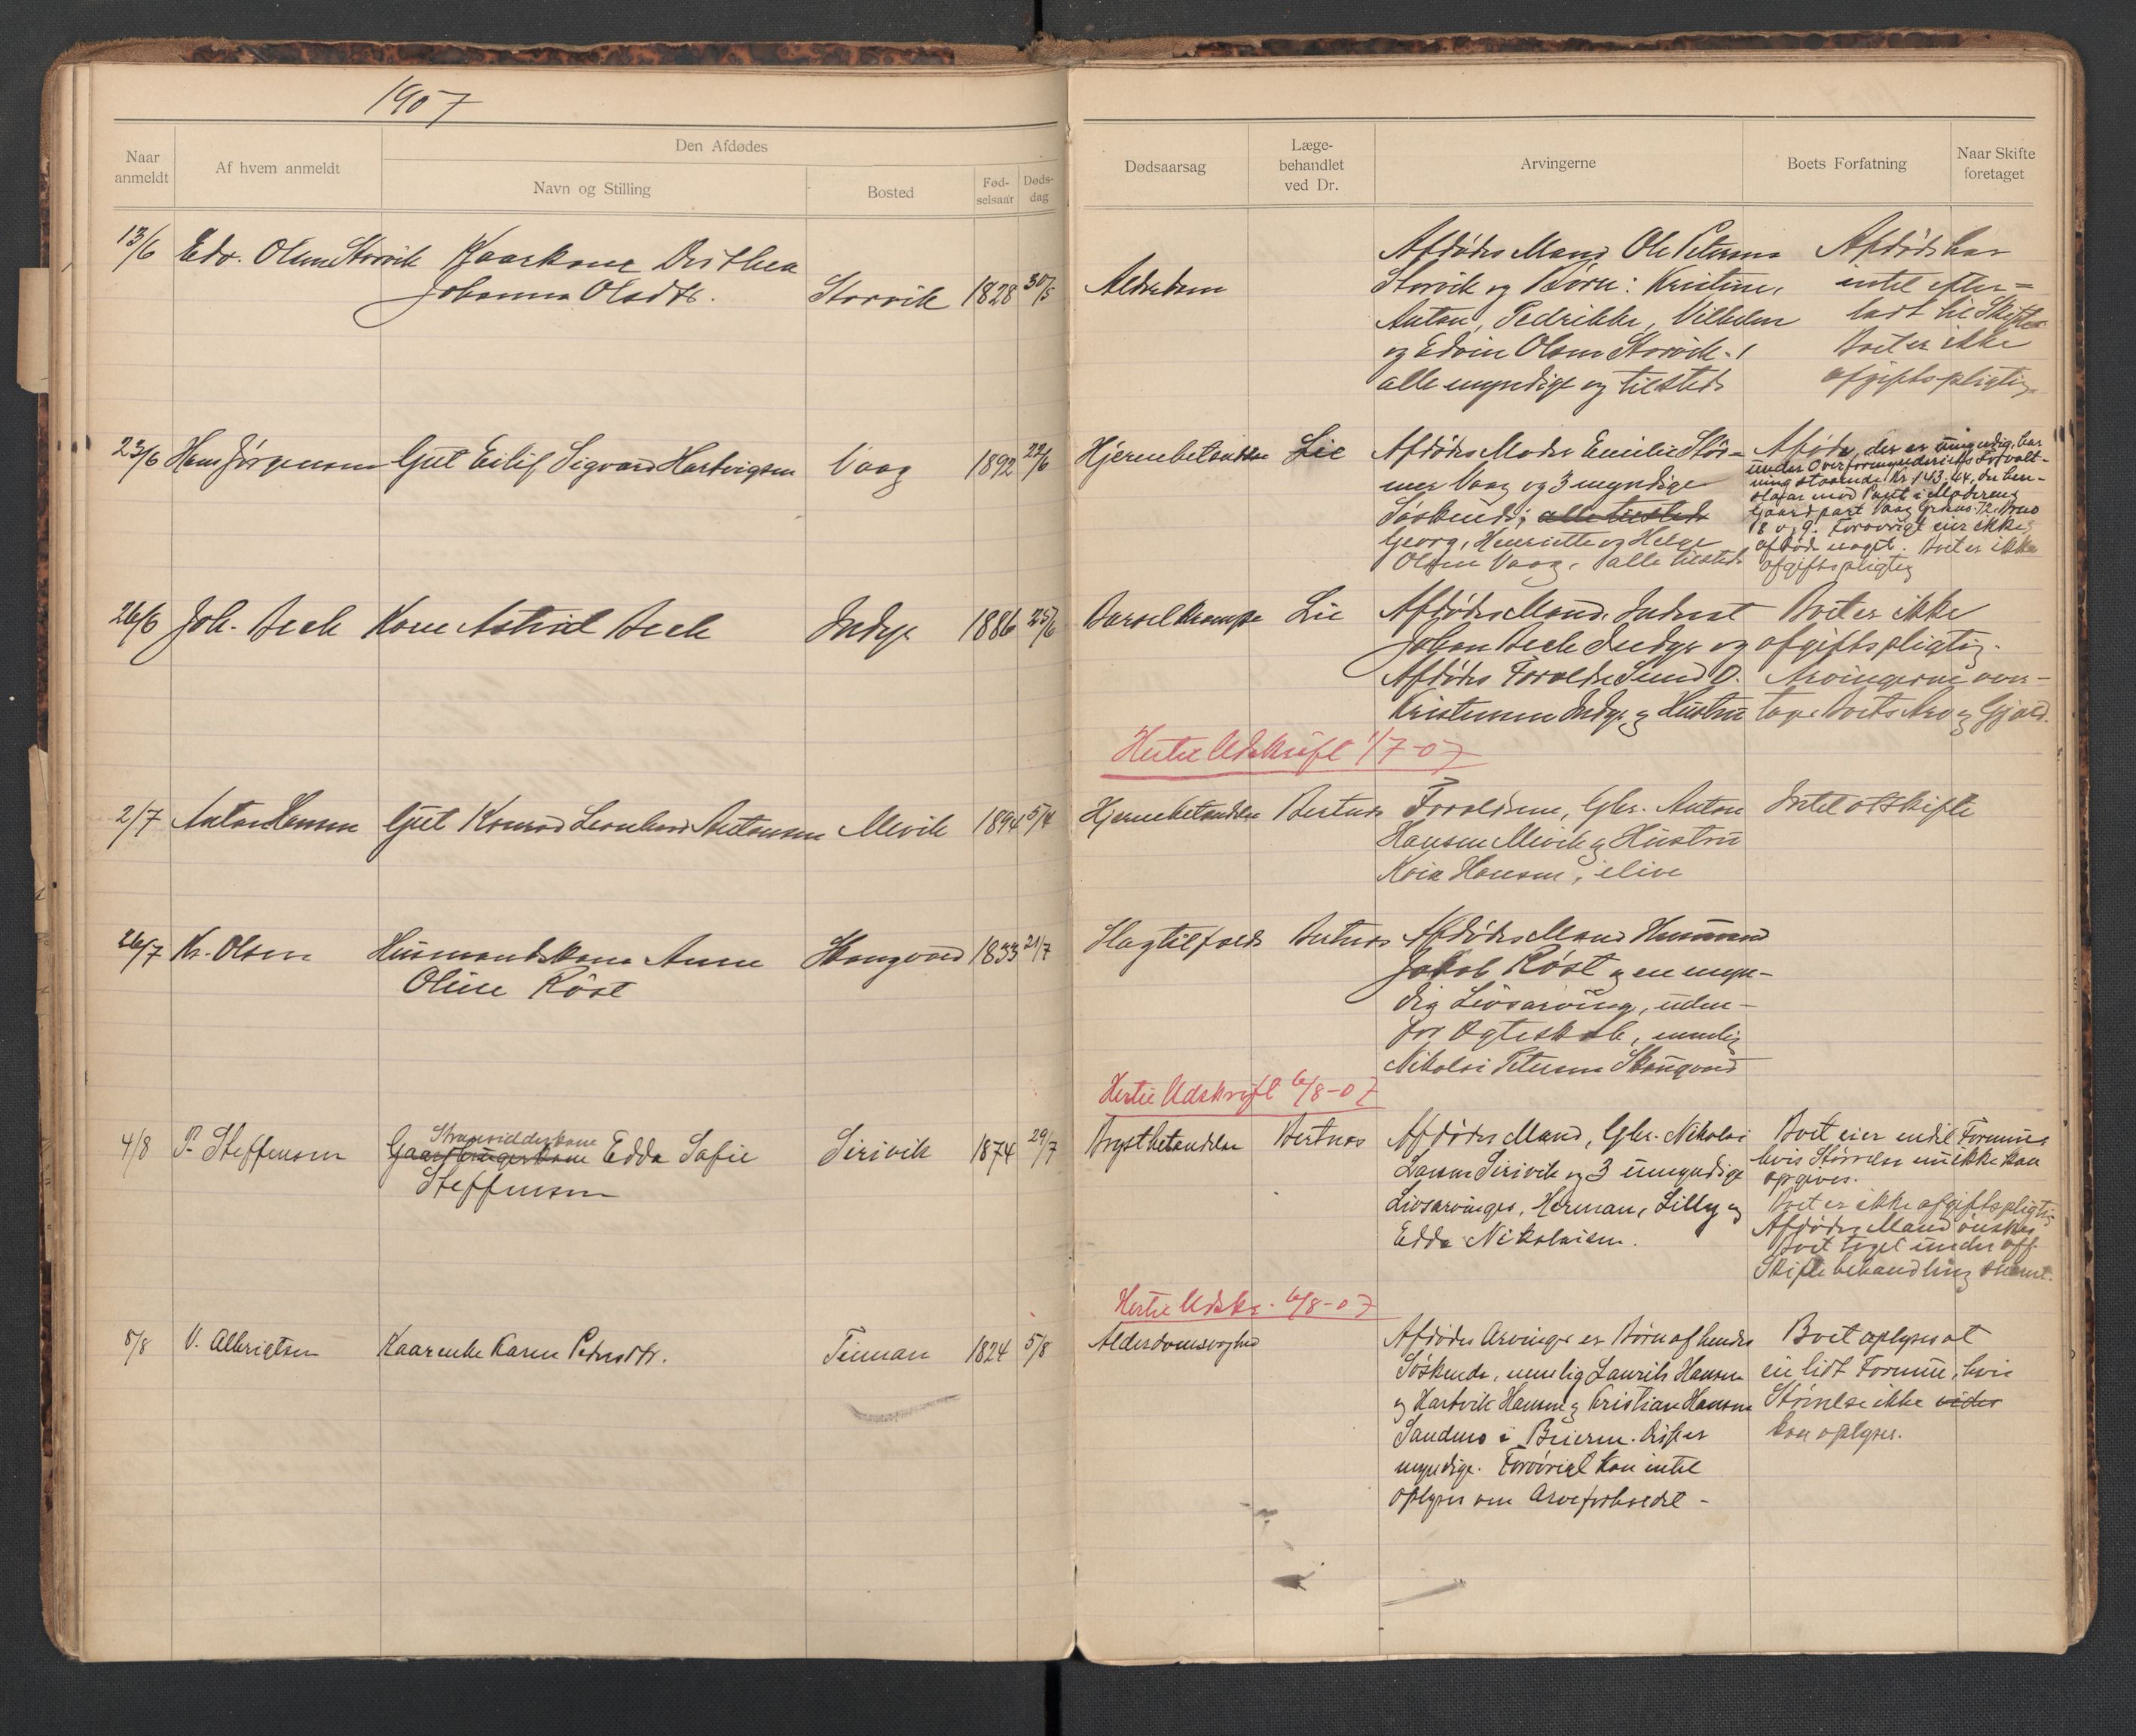 1907
Naar anmeldt
Af hvem anmeldt
Den Afdødes
Navn og Stilling
Bosted
Fød-
selsaar
Døds-
dag
Dødsaarsag
Læge-
behandlet
ved Dr.
Arvingerne
Boets Forfatning
Naar Skifte
foretaget
13/6 Edv. Olsen Storvik Kaarkone Dorthea
Johanna Olsdtr. Storvik 1828 30/5 Alderdom
Afdødes Mand Ole Petersen
Storvik og Børn: Kristine,
Anton, Pedrikke, Vilhelm
og Edvin Olsen Storvik -
alle myndige og tilstede
Afdøde har
intet efter=
ladt til Skifte
Boet er ikke
afgiftspligtig
23/6 Hans Jørgensen Gut Eilif Sigvard Hartvigsen Vaag 1892 22/6 Hjernebetændelse Lie
Afdødes Moder Emilie Stør-
mer Vaag og 3 myndige
Søskende; alle tilstede
Georg, Henriette og Helge
Olsen Vaag, alle tilstede
Afdøde, der er umyndig, har
under Overformynderiets Forvalt-
ning staaende Kr. 143.44, der hen-
staar mod Pant i Moderens
Gaardpart Vaag Grdns. 72 Brno
18 og 9. Forøvrigt eier ikke
afdøde noget. Boet er ikke
afgiftspligtig
26/6 Joh. Bech Kone Astrid Bech Indyr 1886 25/6 Barselkrampe Lie
Afdødes Mand. Inderst
Johan Bech Indyr og
Afdødes Forældre Lund O.
Kristensen Indyr og Hustru
Boet er ikke
afgiftspligtig.
Arvingerne over-
tage Boets Arv og Gjæld.
Hertil Udskrift 1/7-07
2/7 Anton Hansen Gut Konrad Leonhard Antonsen Mevik 1894 5/4 Hjernebetændelse Bertnes
Forældrene, Gbr. Anton
Hansen Mevik og Hustru
Hansen, ilive
Intet at skifte
26/7 Kr. Olsen Husmandskone Anne
Oline Røst Skaugvold 1833 21/7 Slagtilfælde Bertnes
Afdødes Mand Husmand
Jakob Røst og en myn-
dig Livsarving, uden-
for Ægteskab, nemlig
Nikolai Petersen Skaugvold
Hertil Udskrift 6/8-07
4/8 P. Steffensen Strandsidderkone
Gaardbrugerkone Edda Sofie
Steffensen Sirivik 1874 29/7 Brystbetændelse Bertnes
Afdødes Mand, Gbr. Nikolai
Larsen Sirivik og 3 umyndige
Livsarvinger, Herman, Lilly og
Edda Nikolaisen.
Boet eier endel Formue,
hvis Størrelse nu ikke kan
opgives.
Boet er ikke afgiftspligtig
Afdødes Mand ønsker
Boet taget under off.
Skiftebehandling snarest.
Hertil Udskr. 6/8-07
8/8 V. Albrigtsen Kaarenke Karen Pedersdtr. Tennan 1824 5/8 Alderdomssvaghed
Afdødes Arvinger er Børn af hendes
Søskende, nemlig Laurits Hansen
og Hartvik Hansen og Kristian Hansen
Sandmo i Beieren. Disse er
myndige. Forøvrigt kan intet
oplyses om Arveforholdet -
Boet oplyses at
eie lidt Formue, hvis
Størrelse ikke vides
kan oplyses.